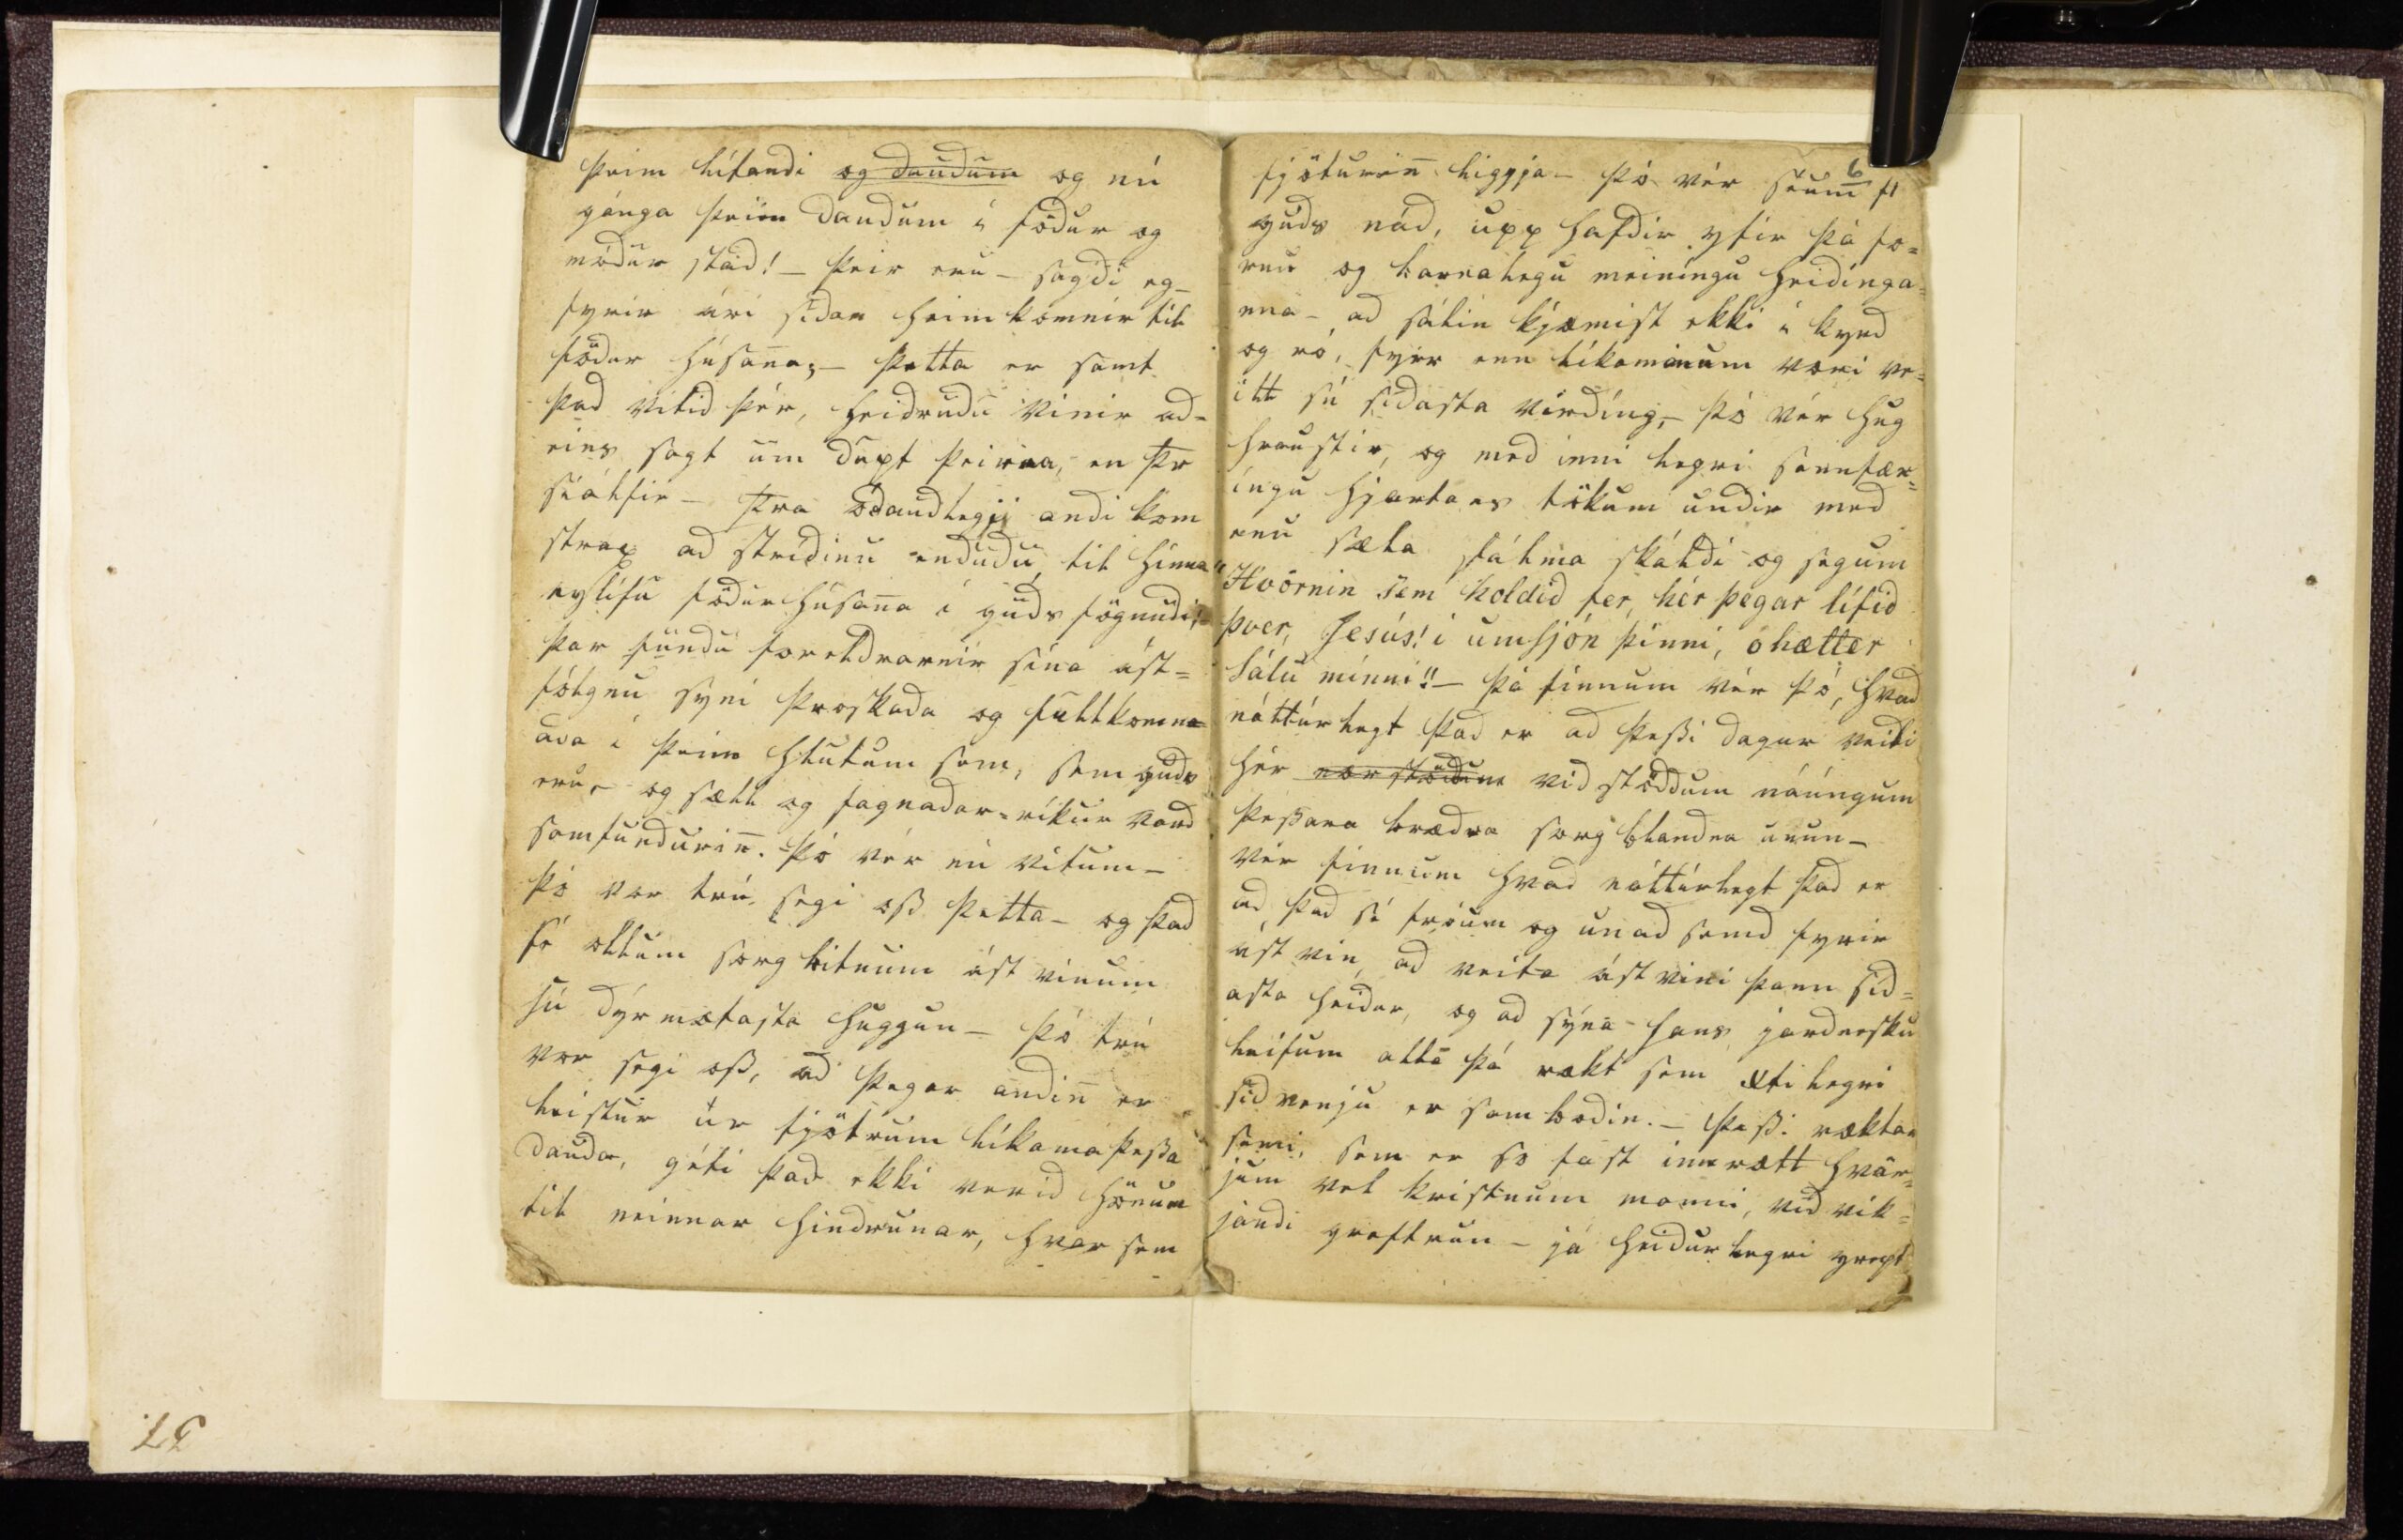 þeim lifandi og daudum og nú
gánga þeim daudum í födur og
módur stad! – þeir eru – sagdi eg –
fyrir ári sídan heimkomnir til
födur húsan̄a; – þetta er samt
þad vitid þér, heidrudu vinir ad-
eins sagt um dupt þeirra, en þr
siálfir – þra ódaudlegji andi kom
strax ad strídinu endudu, til hinna
eylífu födurhúsan̄a í guds fögnudi,
þar fundu foreldrarnir sína ást=
fólgnu syni þroskada og fullkomn=
ada í þeim hlutum sem, sem guds
eru, – og sæll og fagnadar=ríkur vard
samfundurin̄. þó vér nú vitum –
þó vor trú segi oss þetta – og þad
sé öllum sorgbitnum ástvinum
sú dýrmætasta huggun – þó trú
vor segi oss, ad þegar andin̄ er
leistur úr fjötrum líkama þessa
dauda, géti þad ekki verid hönum
til neinnar hindrunar, hvar sem
6
fjöturin̄ liggja – þó vér séum f
guds nád, upp hafdir yfir þá fo=
rnu og barnalegu meiníngu heidínga=
nna – ad sálin kjæmist ekki í kyrd
og ró, fyrr enn líkamanum væri ve=
itt sú sídasta virdíng, – þó vér hug
hraustir, og med inni legri sannfær=
íngu hjartans tökum undir med
enu sæla sálma skáldi og segum
"Hvörnin sem holdid fer, hér þegar lífid
þver, Jesús! í umsjón þinni, óhætt er
sálu minni" – þá finnum vér þó, hvad
náttúrlegt þad er ad þessi dagur veiti
hér nærstöddum vid stöddum náúngum
þessara brædra sorg blandna unun –
vér finnum hvad náttúrlegt þad er
ad, þad sé fróun og unadsemd fyrir
ástvin, ad veita ástvini þann síd=
asta heidur, og ad sýna – hans jardnesku
leifum alla þá rækt sem ætilegri
sidvenju er sambodin. – þessi ræktar
semi, sem er so fast innrætt hvör=
jum vel kristnum manni, vid vík=
jandi greftrun – já heidurlegri grept